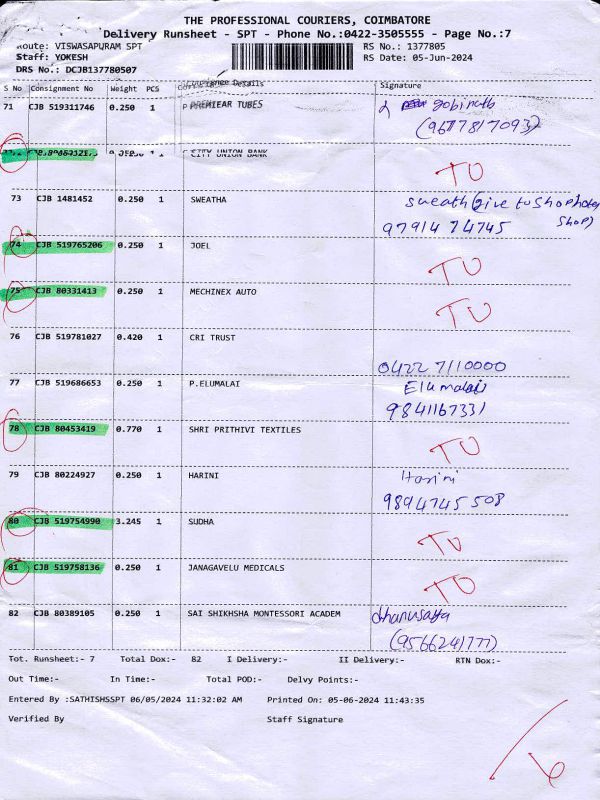 THE PROFESSIONAL COURIERS, COIMBATORE
Delivery Runsheet - SPT - Phone No.:0422-3505555 - Page No.:7
Route: VISWASAPURAM SPT RS No.: 1377805
Staff: YOKESH RS Date: 05-Jun-2024
DRS No.: DCJB137780507
S No Consignment No Weight PCS Consignee Details Signature
71 CJB 519311746 0.250 PREMIEAR TUBES gobinath
CITY UNION BANK TU
73 CJB 1481452 0.250 1 SWEATHA Sweath (Give to Shop
97914 74745 Shop)
74 CJB 519765206 0.250 1 JOEL TU
75 CJB 80331413 0.250 1 MECHINEX AUTO TU
76 CJB 519781027 0.420 1 CRI TRUST
0422 7110000
77 CJB 519686653 0.250 1 P.ELUMALAI Elumalai
9841167331
78 CJB 80453419 0.770 1 SHRI PRITHIVI TEXTILES TU
79 CJB 80224927 0.250 1 HARINI Harini
9894745508
80 CJB 519754990 3.245 1 SUDHA TU
81 CJB 519758136 0.250 1 JANAGAVELU MEDICALS TU
82 CJB 80389105 0.250 1 SAI SHIKHSHA MONTESSORI ACADEM
(9566241777)
Tot. Runsheet:- 7 Total Dox:- 82 I Delivery:- II Delivery:- RTN Dox:-
Out Time:- In Time:- Total POD:- Delvy Points:-
Entered By :SATHISHSSPT 06/05/2024 11:32:02 AM Printed On: 05-06-2024 11:43:35
Verified By Staff Signature